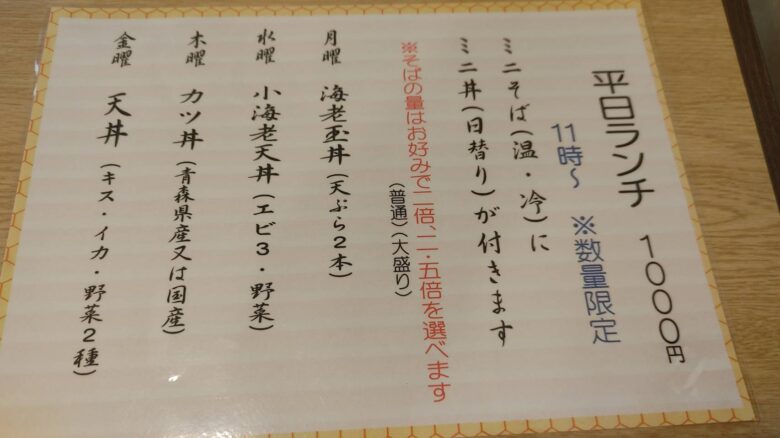 平日ランチ 1000円
11時～ ※数量限定
ミニそば(温・冷)に
ミニ丼(日替り)が付きます
※そばの量はお好みで二倍、二・五倍を選べます
(普通)(大盛り)
月曜 海老玉丼(天ぷら2本)
水曜 小海老天丼(エビ3・野菜)
木曜 カツ丼(青森県産又は国産)
金曜 天丼(キス・イカ・野菜2種)